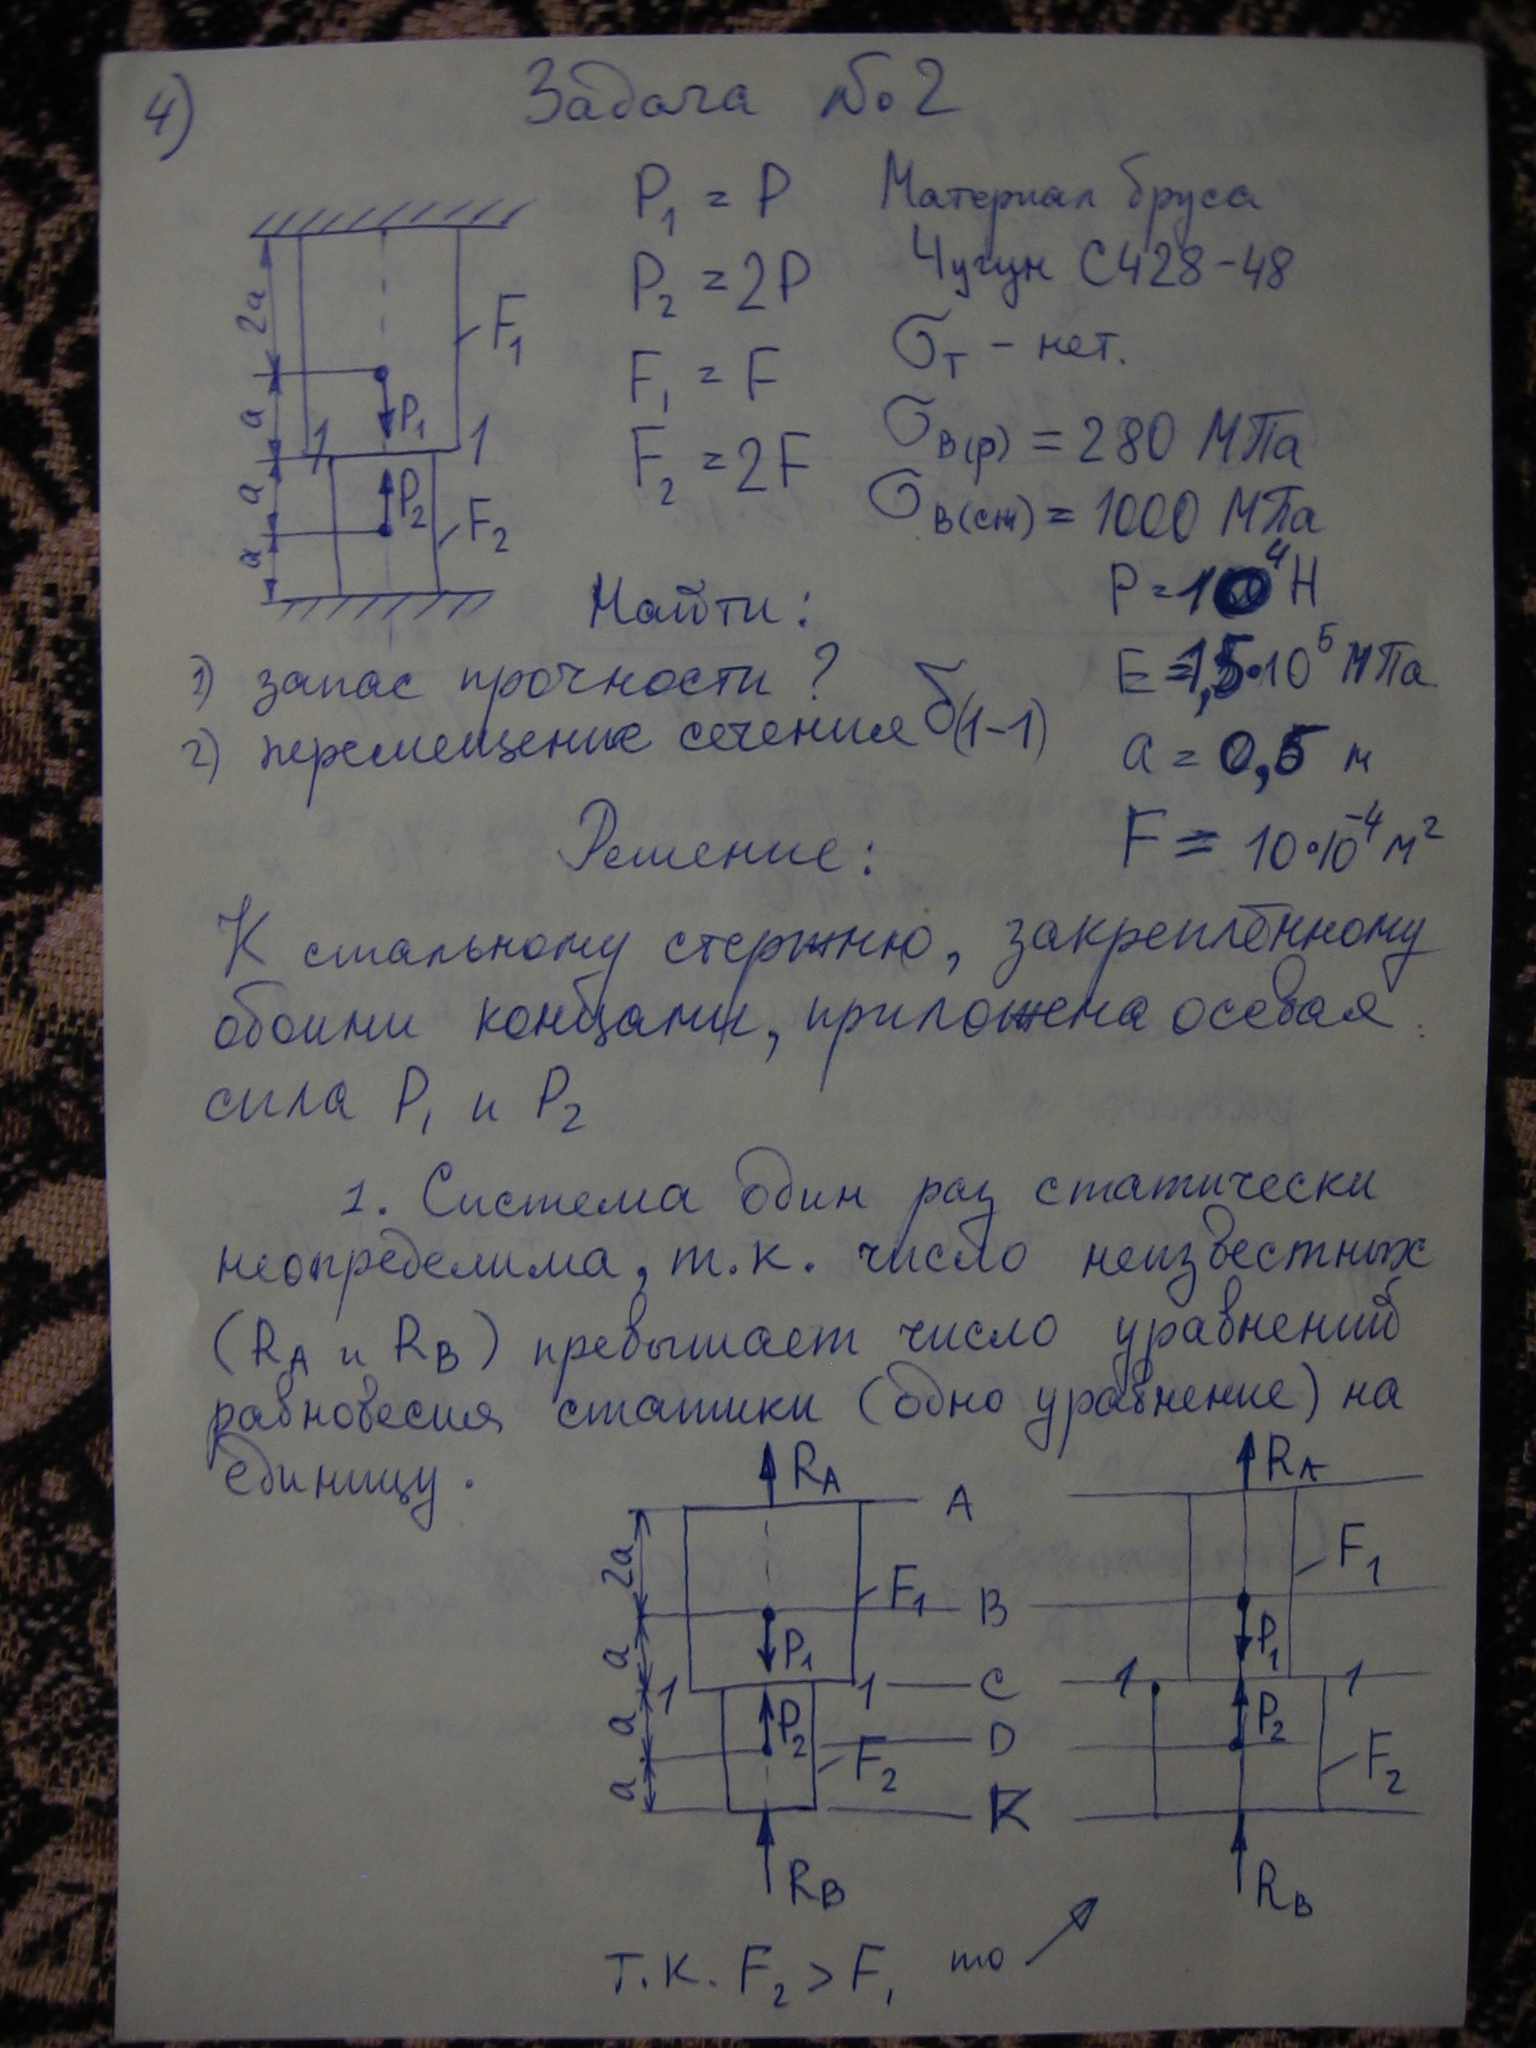 4)
Задача №2
P₁ = P
P₂ = 2P
F₁ = F
F₂ = 2F
Материал бруса
Чугун СЧ28-48
σт - нет.
σв(р) = 280 МПа
σв(сж) = 1000 МПа
P = 10⁴ Н
E = 1,5·10⁵ МПа
a = 0,5 м
F = 10·10⁻⁴ м²
2a
a
a
a
F₁
P₁
1
1
P₂
F₂
Найти:
1) запас прочности?
2) перемещение сечения δ(1-1)
Решение:
К стальному стержню, закреплённому
обоими концами, приложена осевая
сила P₁ и P₂
1. Система один раз статически
неопределима, т.к. число неизвестных
(RA и RB) превышает число уравнений
равновесия статики (одно уравнение) на
единицу.
RA
A
2a
F₁
B
a
P₁
1
1
C
a
P₂
D
F₂
a
K
RB
RA
F₁
P₁
1
1
P₂
F₂
RB
т.к. F₂ > F₁ то